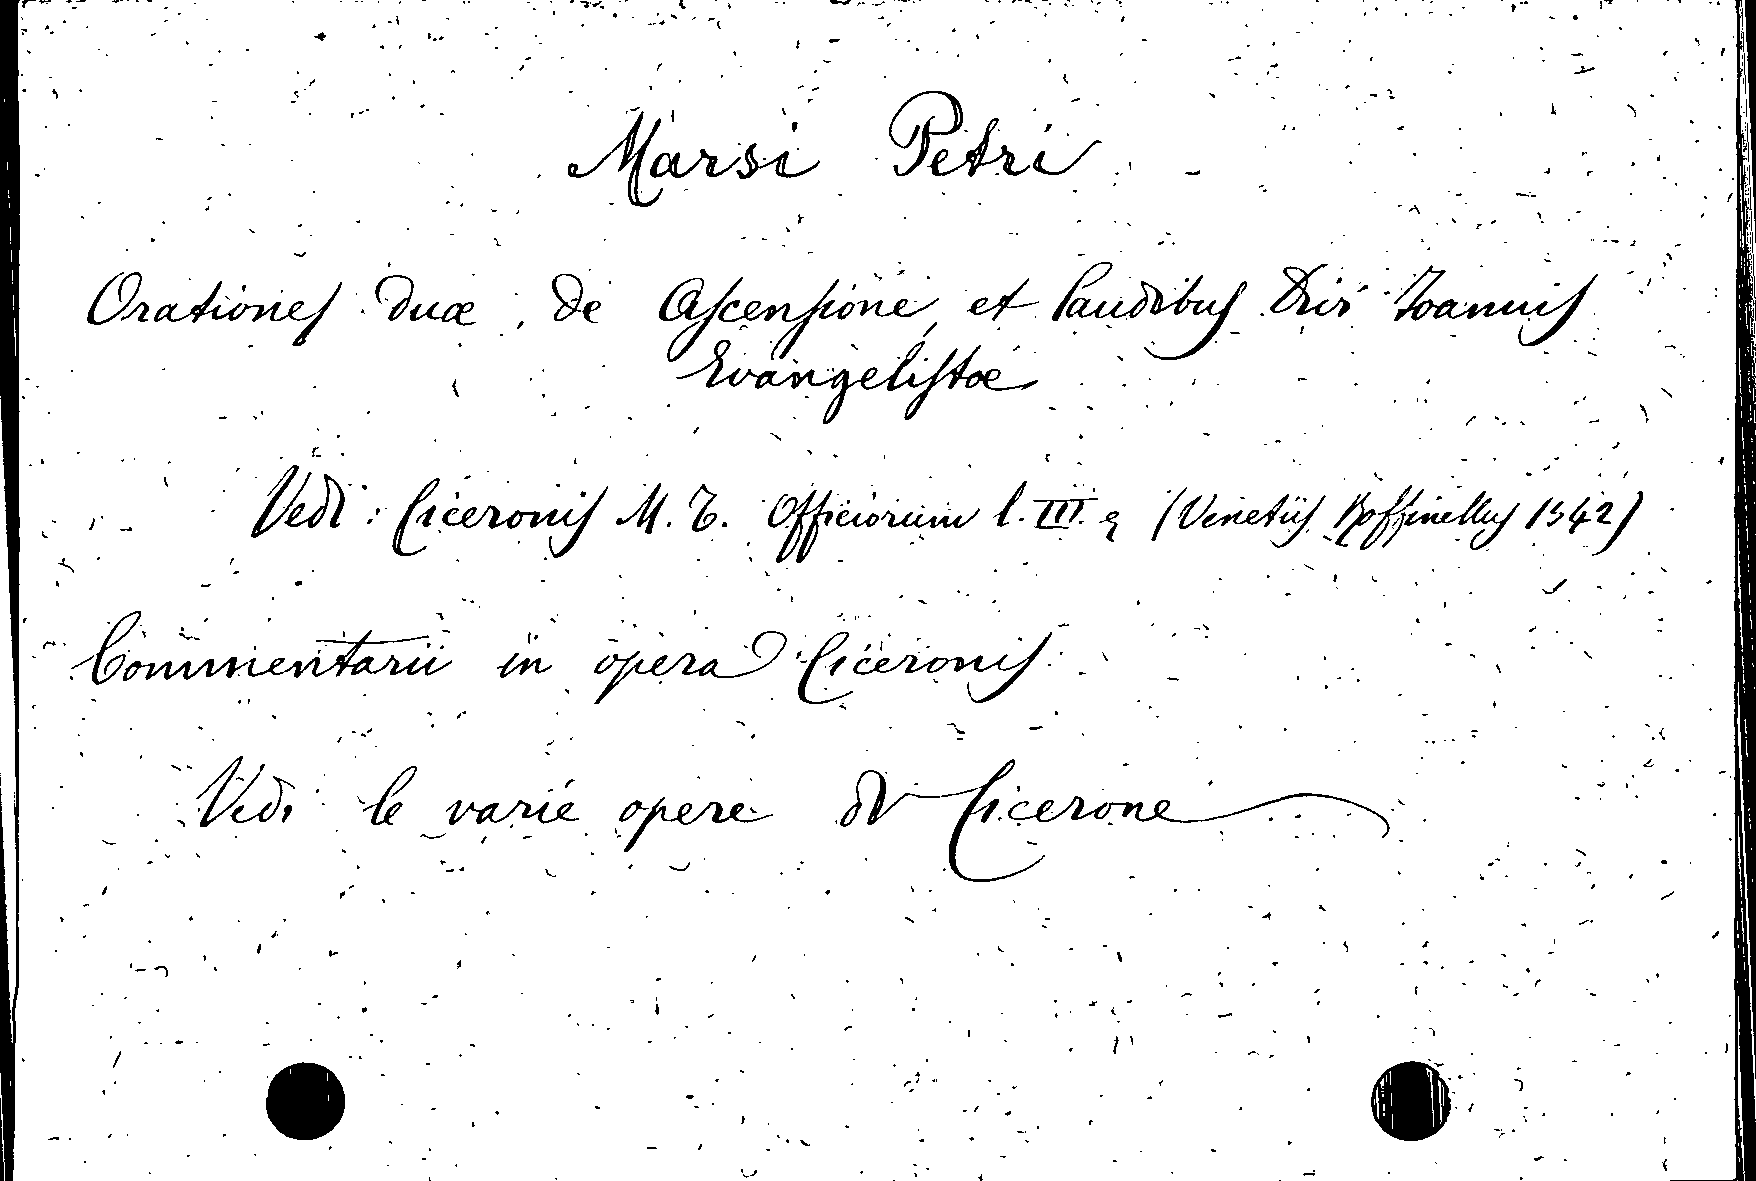 Marsi Petri
Orationes duæ, de Ascensione, et laudibus Divi Joannis
Evangelistæ
Vedi: Ciceronis M. T. Officiorum l. III. &. (Venetiis Roffinellus 1542)
Commentarii in opera Ciceronis
Vedi le varie opere di Cicerone